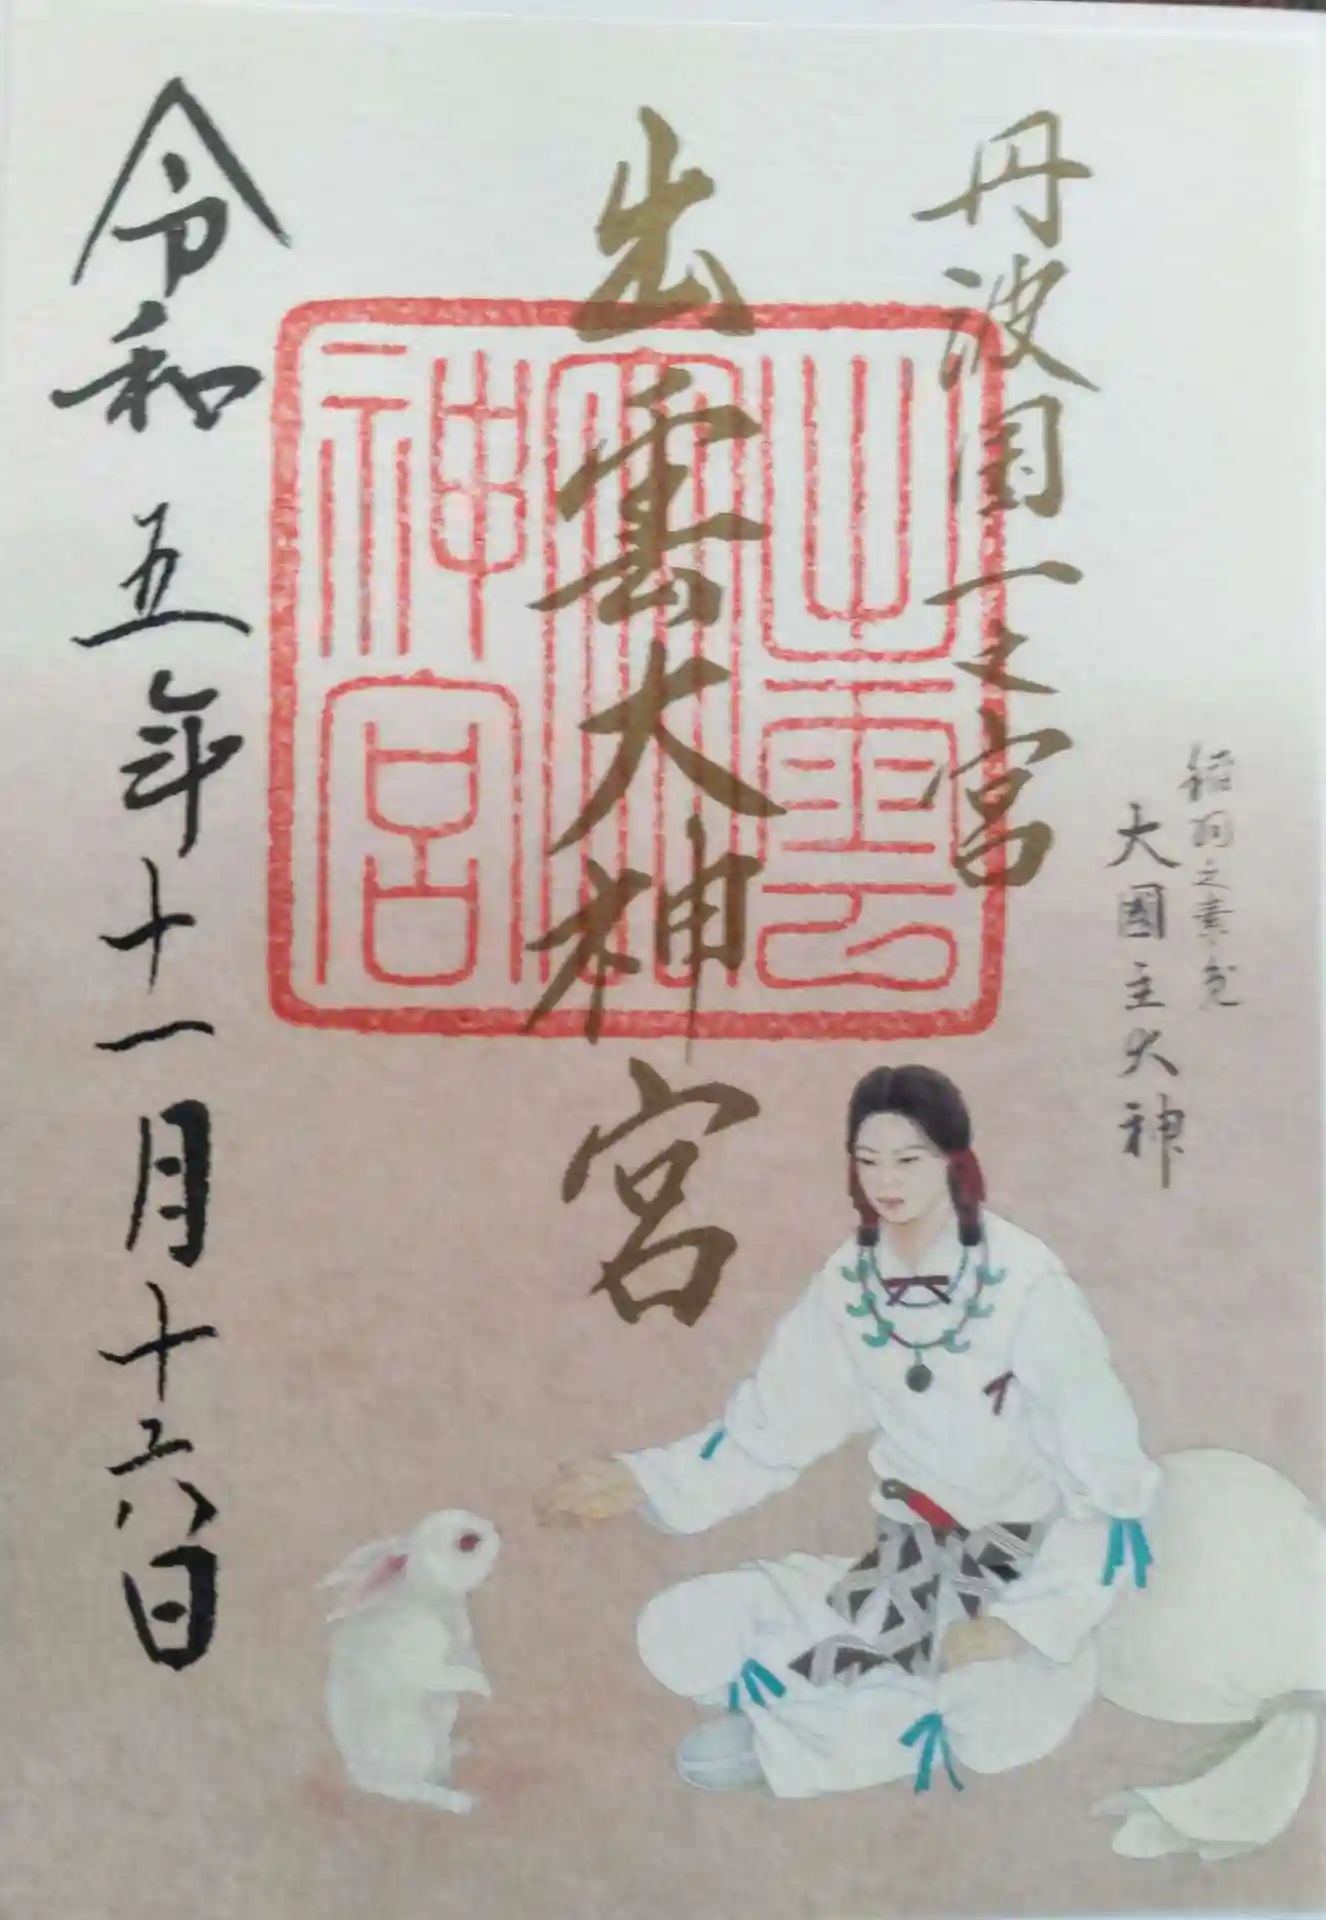 稲羽之素兎
大國主大神
丹波国一之宮
出雲大神宮
出雲大神宮
令和五年十一月十六日